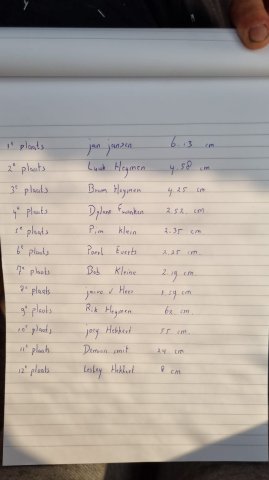 1e plaats jan jansen 6.13 cm
2e plaats Luuk Heymen 4.58 cm
3e plaats Bram Heymen 4.25 cm
4e plaats Dylano 2.52 cm
5e plaats Pim Klein 2.35 cm
6e plaats Everts 2.25 cm.
7e plaats Bob Kleine 2.19 cm.
8e plaats v Heer 1.59 cm
9e plaats Rik Heymen 62 cm.
10e plaats joey Hekkert 55 cm.
11e plaats smit 24 cm.
12e plaats Lesley Hekkert 8 cm